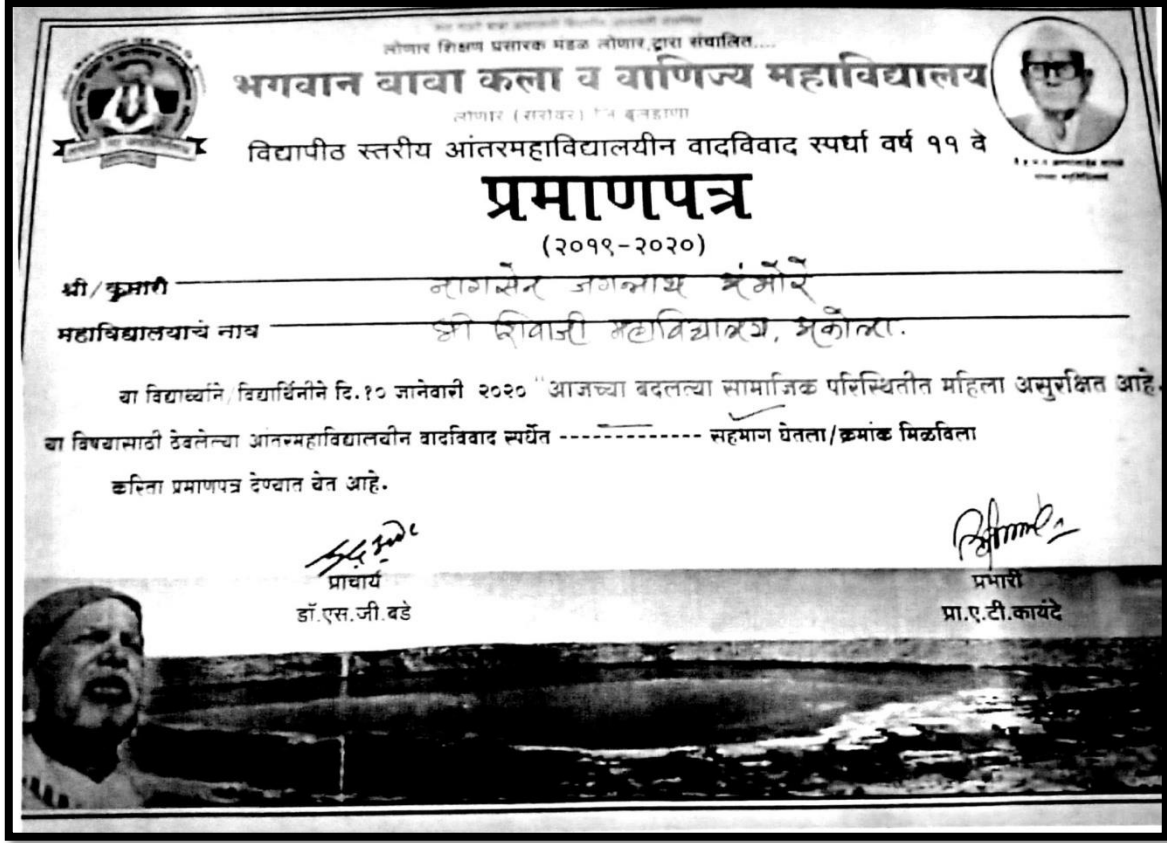 लोणार शिक्षण प्रसारक मंडळ लोणार,द्वारा संचालित....
भगवान बाबा कला व वाणिज्य महाविद्यालय
लोणार (सरोवर) जि बुलडाणा
विद्यापीठ स्तरीय आंतरमहाविद्यालयीन वादविवाद स्पर्धा वर्ष ११ वे
प्रमाणपत्र
(२०१९-२०२०)
श्री/कुमारी नागसेन जगन्नाथ अंभोरे
महाविद्यालयाचं नाव श्री शिवाजी महाविद्यालय, अकोला.
या विद्यार्थ्याने/विद्यार्थिनीने दि.१० जानेवारी २०२० "आजच्या बदलत्या सामाजिक परिस्थितीत महिला असुरक्षित आहे.
या विषयासाठी ठेवलेल्या आंतरमहाविद्यालयीन वादविवाद स्पर्धेत ------------- सहभाग घेतला/क्रमांक मिळविला
करिता प्रमाणपत्र देण्यात येत आहे.
प्राचार्य
डॉ.एस.जी.बडे
प्रभारी
प्रा.ए.टी.कायंदे